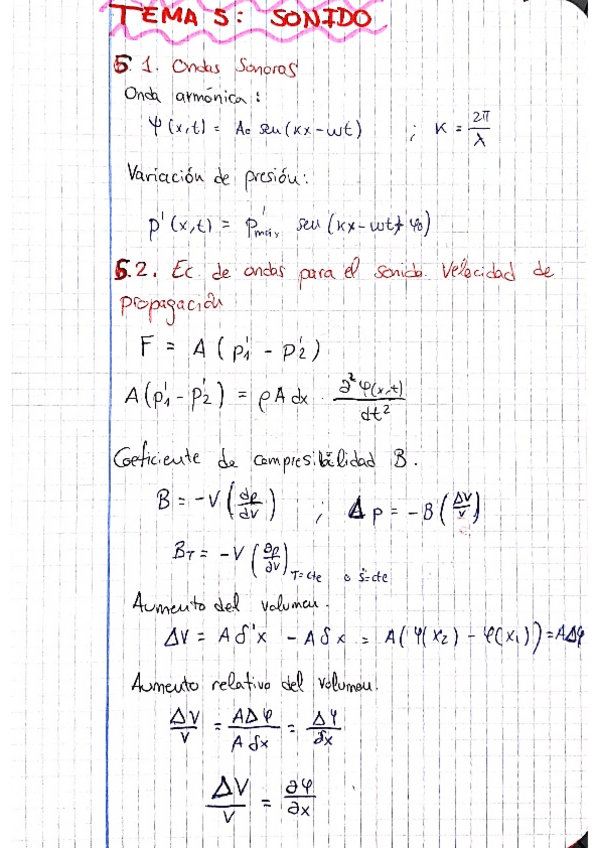 TEMA 5: SONIDO
5.1. Ondas Sonoras
Onda armónica:
Ψ(x,t) = A₀ sen(kx-ωt) ; K = 2π/λ
Variación de presión:
p'(x,t) = p'máx sen(kx-ωt+φ₀)
5.2. Ec. de ondas para el sonido. Velocidad de
propagación
F = A(p'₁ - p'₂)
A(p'₁ - p'₂) = ρA dx · ∂²Ψ(x,t)/dt²
Coeficiente de compresibilidad B.
B = -V(dp/dV) ; Δp = -B(ΔV/V)
B_T = -V(∂p/∂V)T=cte o S=cte
Aumento del volumen.
ΔV = Aδ'x - Aδx = A(Ψ(x₂) - Ψ(x₁)) = AΔΨ
Aumento relativo del volumen.
ΔV/V = AΔΨ/Aδx = ΔΨ/δx
ΔV/V = ∂Ψ/∂x